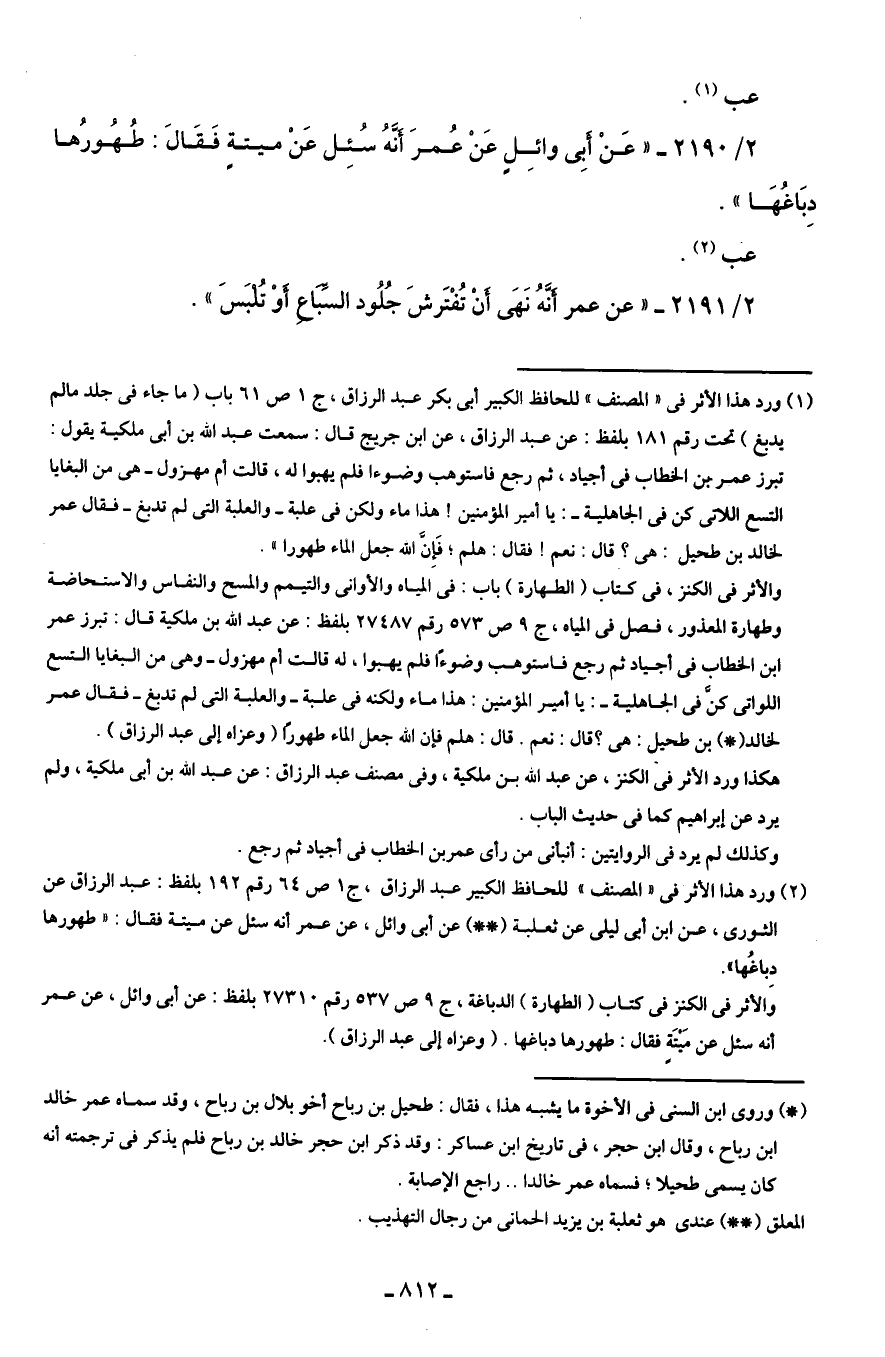 عب (١) .
٢/ ٢١٩٠ ـ « عَـنْ أَبِى وائِـلٍ عَنْ عُـمـرَ أَنَّهُ سُـئِـل عَنْ مـيـتـةٍ فَـقَـالَ : طُـهُـورُهـا
دِبَاغُهَـا » .
عب (٢) .
٢/ ٢١٩١ ـ « عن عمر أَنَّهُ نَهَى أَنْ تُفْتَرشَ جُلُود السِّبَاعِ أَوْ تُلْبَسَ » .
(١) ورد هذا الأثر فى « المصنف » للحافظ الكبير أبى بكر عبد الرزاق ، ج ١ ص ٦١ باب ( ما جاء فى جلد مالم
يدبغ ) تحت رقم ١٨١ بلفظ : عن عبد الرزاق ، عن ابن جريج قال : سمعت عبد الله بن أبى ملكية يقول :
تبرز عمر بن الخطاب فى أجياد ، ثم رجع فاستوهب وضوءا فلم يهبوا له ، قالت أم مهزول ـ هى من البغايا
التسع اللاتى كن فى الجاهلية ـ : يا أمير المؤمنين ! هذا ماء ولكن فى علبة ـ والعلبة التى لم تدبغ ـ فقال عمر
لخالد بن طحيل : هى ؟ قال : نعم ! فقال : هلم ؛ فَإِنَّ الله جعل الماء طهورا » .
والأثر فى الكنز ، فى كتاب ( الطهارة ) باب : فى المياه والأوانى والتيمم والمسح والنفاس والاستحاضة
وطهارة المعذور ، فصل فى المياه ، ج ٩ ص ٥٧٣ رقم ٢٧٤٨٧ بلفظ : عن عبد الله بن ملكية قال : تبرز عمر
ابن الخطاب فى أجياد ثم رجع فاستوهب وضوءًا فلم يهبوا ، له قالت أم مهزول ـ وهى من البغايا التسع
اللواتى كنَّ فى الجاهلية ـ : يا أمير المؤمنين : هذا ماء ولكنه فى علبة ـ والعلبة التى لم تدبغ ـ فقال عمر
لخالد(*) بن طحيل : هى ؟قال : نعم . قال : هلم فإن الله جعل الماء طهورًا ( وعزاه إلى عبد الرزاق ) .
هكذا ورد الأثر فى الكنز ، عن عبد الله بن ملكية ، وفى مصنف عبد الرزاق : عن عبد الله بن أبى ملكية ، ولم
يرد عن إبراهيم كما فى حديث الباب .
وكذلك لم يرد فى الروايتين : أنبأنى من رأى عمربن الخطاب فى أجياد ثم رجع .
(٢) ورد هذا الأثر فى « المصنف » للحافظ الكبير عبد الرزاق ، ج١ ص ٦٤ رقم ١٩٢ بلفظ : عبد الرزاق عن
الثورى ، عن ابن أبى ليلى عن ثعلبة (**) عن أبى وائل ، عن عمر أنه سئل عن ميتة فقال : « طهورها
دِباغُها».
والأثر فى الكنز فى كتاب ( الطهارة ) الدباغة ، ج ٩ ص ٥٣٧ رقم ٢٧٣١٠ بلفظ : عن أبى وائل ، عن عمر
أنه سئل عن مَيْتَةٍ فقال : طهورها دباغها . ( وعزاه إلى عبد الرزاق ).
(*) وروى ابن السنى فى الأخوة ما يشبه هذا ، فقال : طحيل بن رباح أخو بلال بن رباح ، وقد سماه عمر خالد
ابن رباح ، وقال ابن حجر ، فى تاريخ ابن عساكر : وقد ذكر ابن حجر خالد بن رباح فلم يذكر فى ترجمته أنه
كان يسمى طحيلا ؛ فسماه عمر خالدا .. راجع الإصابة .
المعلق (**) عندى هو ثعلبة بن يزيد الحمانى من رجال التهذيب .
ـ ٨١٢ ـ